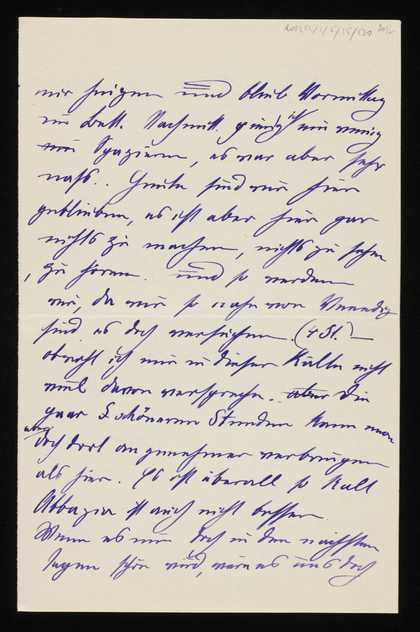 mir heizen und blieb Vormittag
im Bett. Nachmitt. ging ich ein wenig
Spazieren, es war aber sehr
naß. Heute sind wir hier
geblieben, es ist aber hier gar
nichts zu machen, nichts zu sehen
, zu hören. und so werden
wir, da wir so nahe von Venedig
sind es doch versuchen. (4 St.)
obwohl ich mir in dieser Kälte nicht
viel davon verspreche. aber die
paar schöneren Stunden kann man
aber
doch dort angenehmer verbringen
als hier. Es ist überall so kalt
Abbazia ist auch nicht besser.
Wenn es nur doch in den nächsten
Tagen schön wird, wäre es uns doch